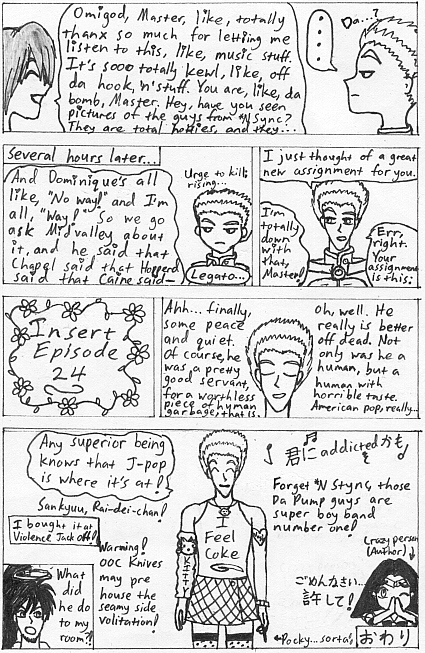 Omigod, Master, like, totally
thanx so much for letting me
listen to this, like, music stuff.
It's sooo totally kewl, like, off
da hook, 'n' stuff. You are, like, da
bomb, Master. Hey, have you seen
pictures of the guys from *N Sync?
They are total hotties, and they...
...
Da...?
Several hours later...
And Dominique's all
like, "No way!" and I'm
all, "Way!" So we go
ask Midvalley about
it, and he said that
Chapel said that Hopperd
said that Caine said-
Urge to kill;
rising...
Legato...
I just thought of a great
new assignment for you.
I'm
totally
down
with
that,
Master!
Err,
right.
Your
assignment
is this:
Insert
Episode
24
Ahh... finally,
some peace
and quiet.
Of course, he
was a pretty
good servant,
for a worthless
piece of human
garbage, that is.
oh, well. He
really is better
off dead. Not
only was he a
human, but a
human with
horrible taste.
American pop, really...
Any superior being
knows that J-pop
is where it's at!
Sankyuu, Rai-dei-chan!
I bought it at
Violence Jack Off!
Warning!
OOC Knives
may pre
house the
seamy side
volitation!
What
did
he do
to my
room?!
I
Feel
Coke
KITTY
君に addicted かも
Forget *N Stync, those
Da Pump guys are
super boy band
number one!
Crazy person
(Author)
ごめんなさい...
許して!
←Pocky...sorta
おわり